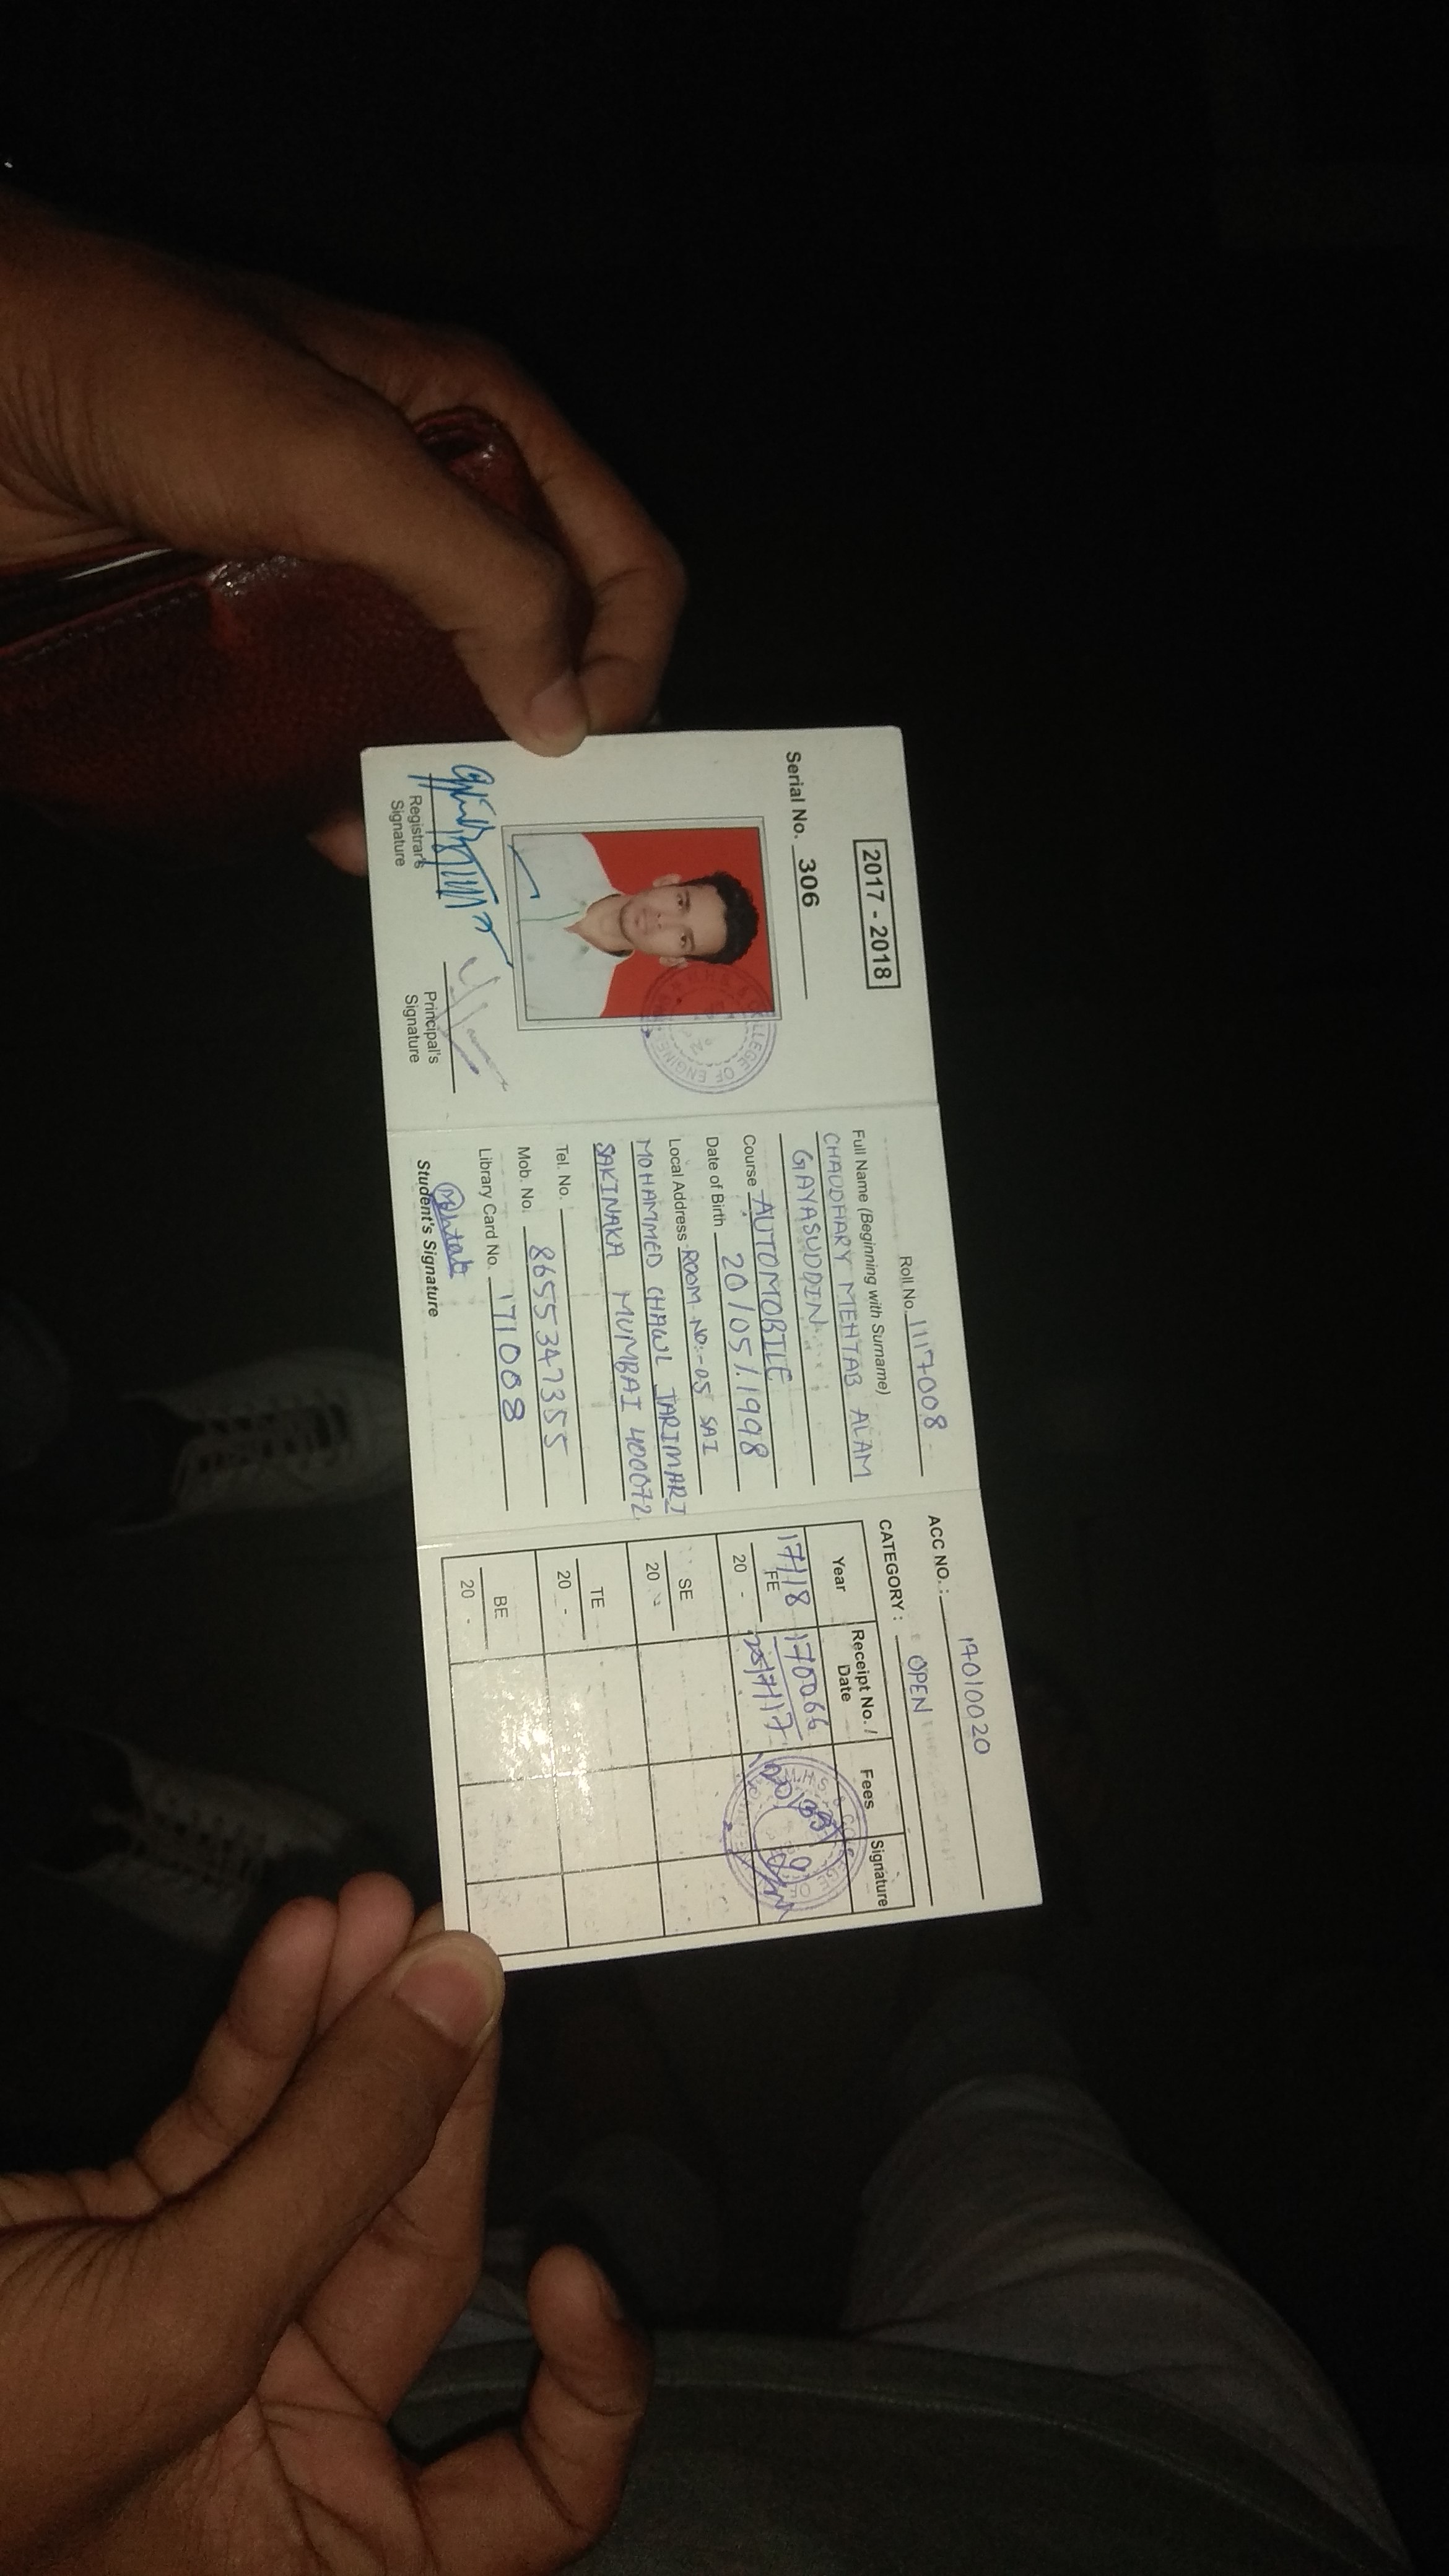 2017 - 2018
Serial No. 306
COLLEGE OF ENGINEE
Registrar's
Signature
Principal's
Signature
Roll No. 1117008
Full Name (Beginning with Surname)
CHAUDHARY MEHTAB ALAM
GAYASUDDIN
Course AUTOMOBILE
Date of Birth 20/05/1998
Local Address ROOM NO:-05 SAI
MOHAMMED CHAWL JARIMARI
SAKINAKA MUMBAI 400072
Tel. No.
Mob. No. 8655347355
Library Card No. 171008
Mehtab
Student's Signature
ACC NO. : 17010020
CATEGORY : OPEN
Year Receipt No. / Date Fees Signature
17/18 FE 20 - 170066
25/7/17
SE
20 -
TE
20 -
BE
20 -